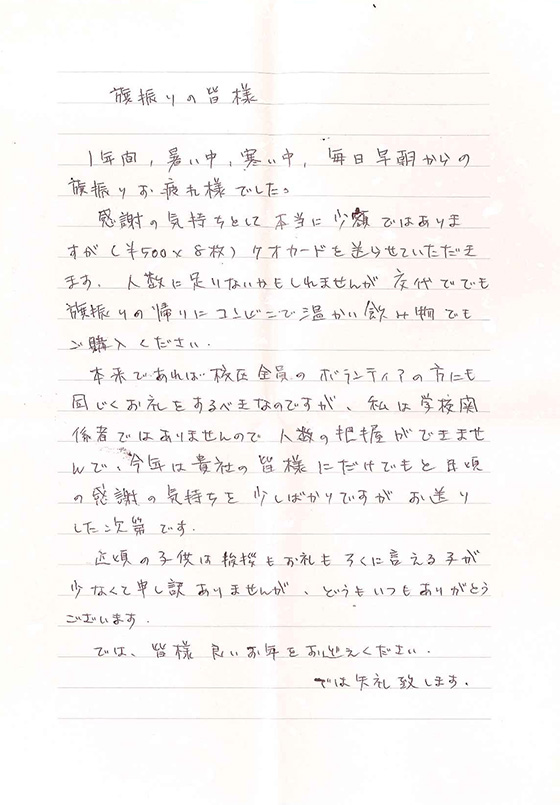 旗振りの皆様
1年間,暑い中,寒い中,毎日早朝からの
旗振りお疲れ様でした。
感謝の気持ちとして本当に少額ではありま
すが(¥500×8枚)クオカードを送らせていただき
ます.人数に足りないかもしれませんが交代ででも
旗振りの帰りにコンビニで温かい飲み物でも
ご購入ください.
本来であれば校区全員のボランティアの方にも
同じくお礼をするべきなのですが、私は学校関
係者ではありませんので人数の把握ができませ
んで、今年は貴社の皆様にだけでもと日頃
の感謝の気持ちを少しばかりですがお送り
した次第です.
近頃の子供は挨拶もお礼もろくに言える子が
少なくて申し訳ありませんが、どうもいつもありがとう
ございます.
では、皆様良いお年をお迎えください.
では失礼致します.